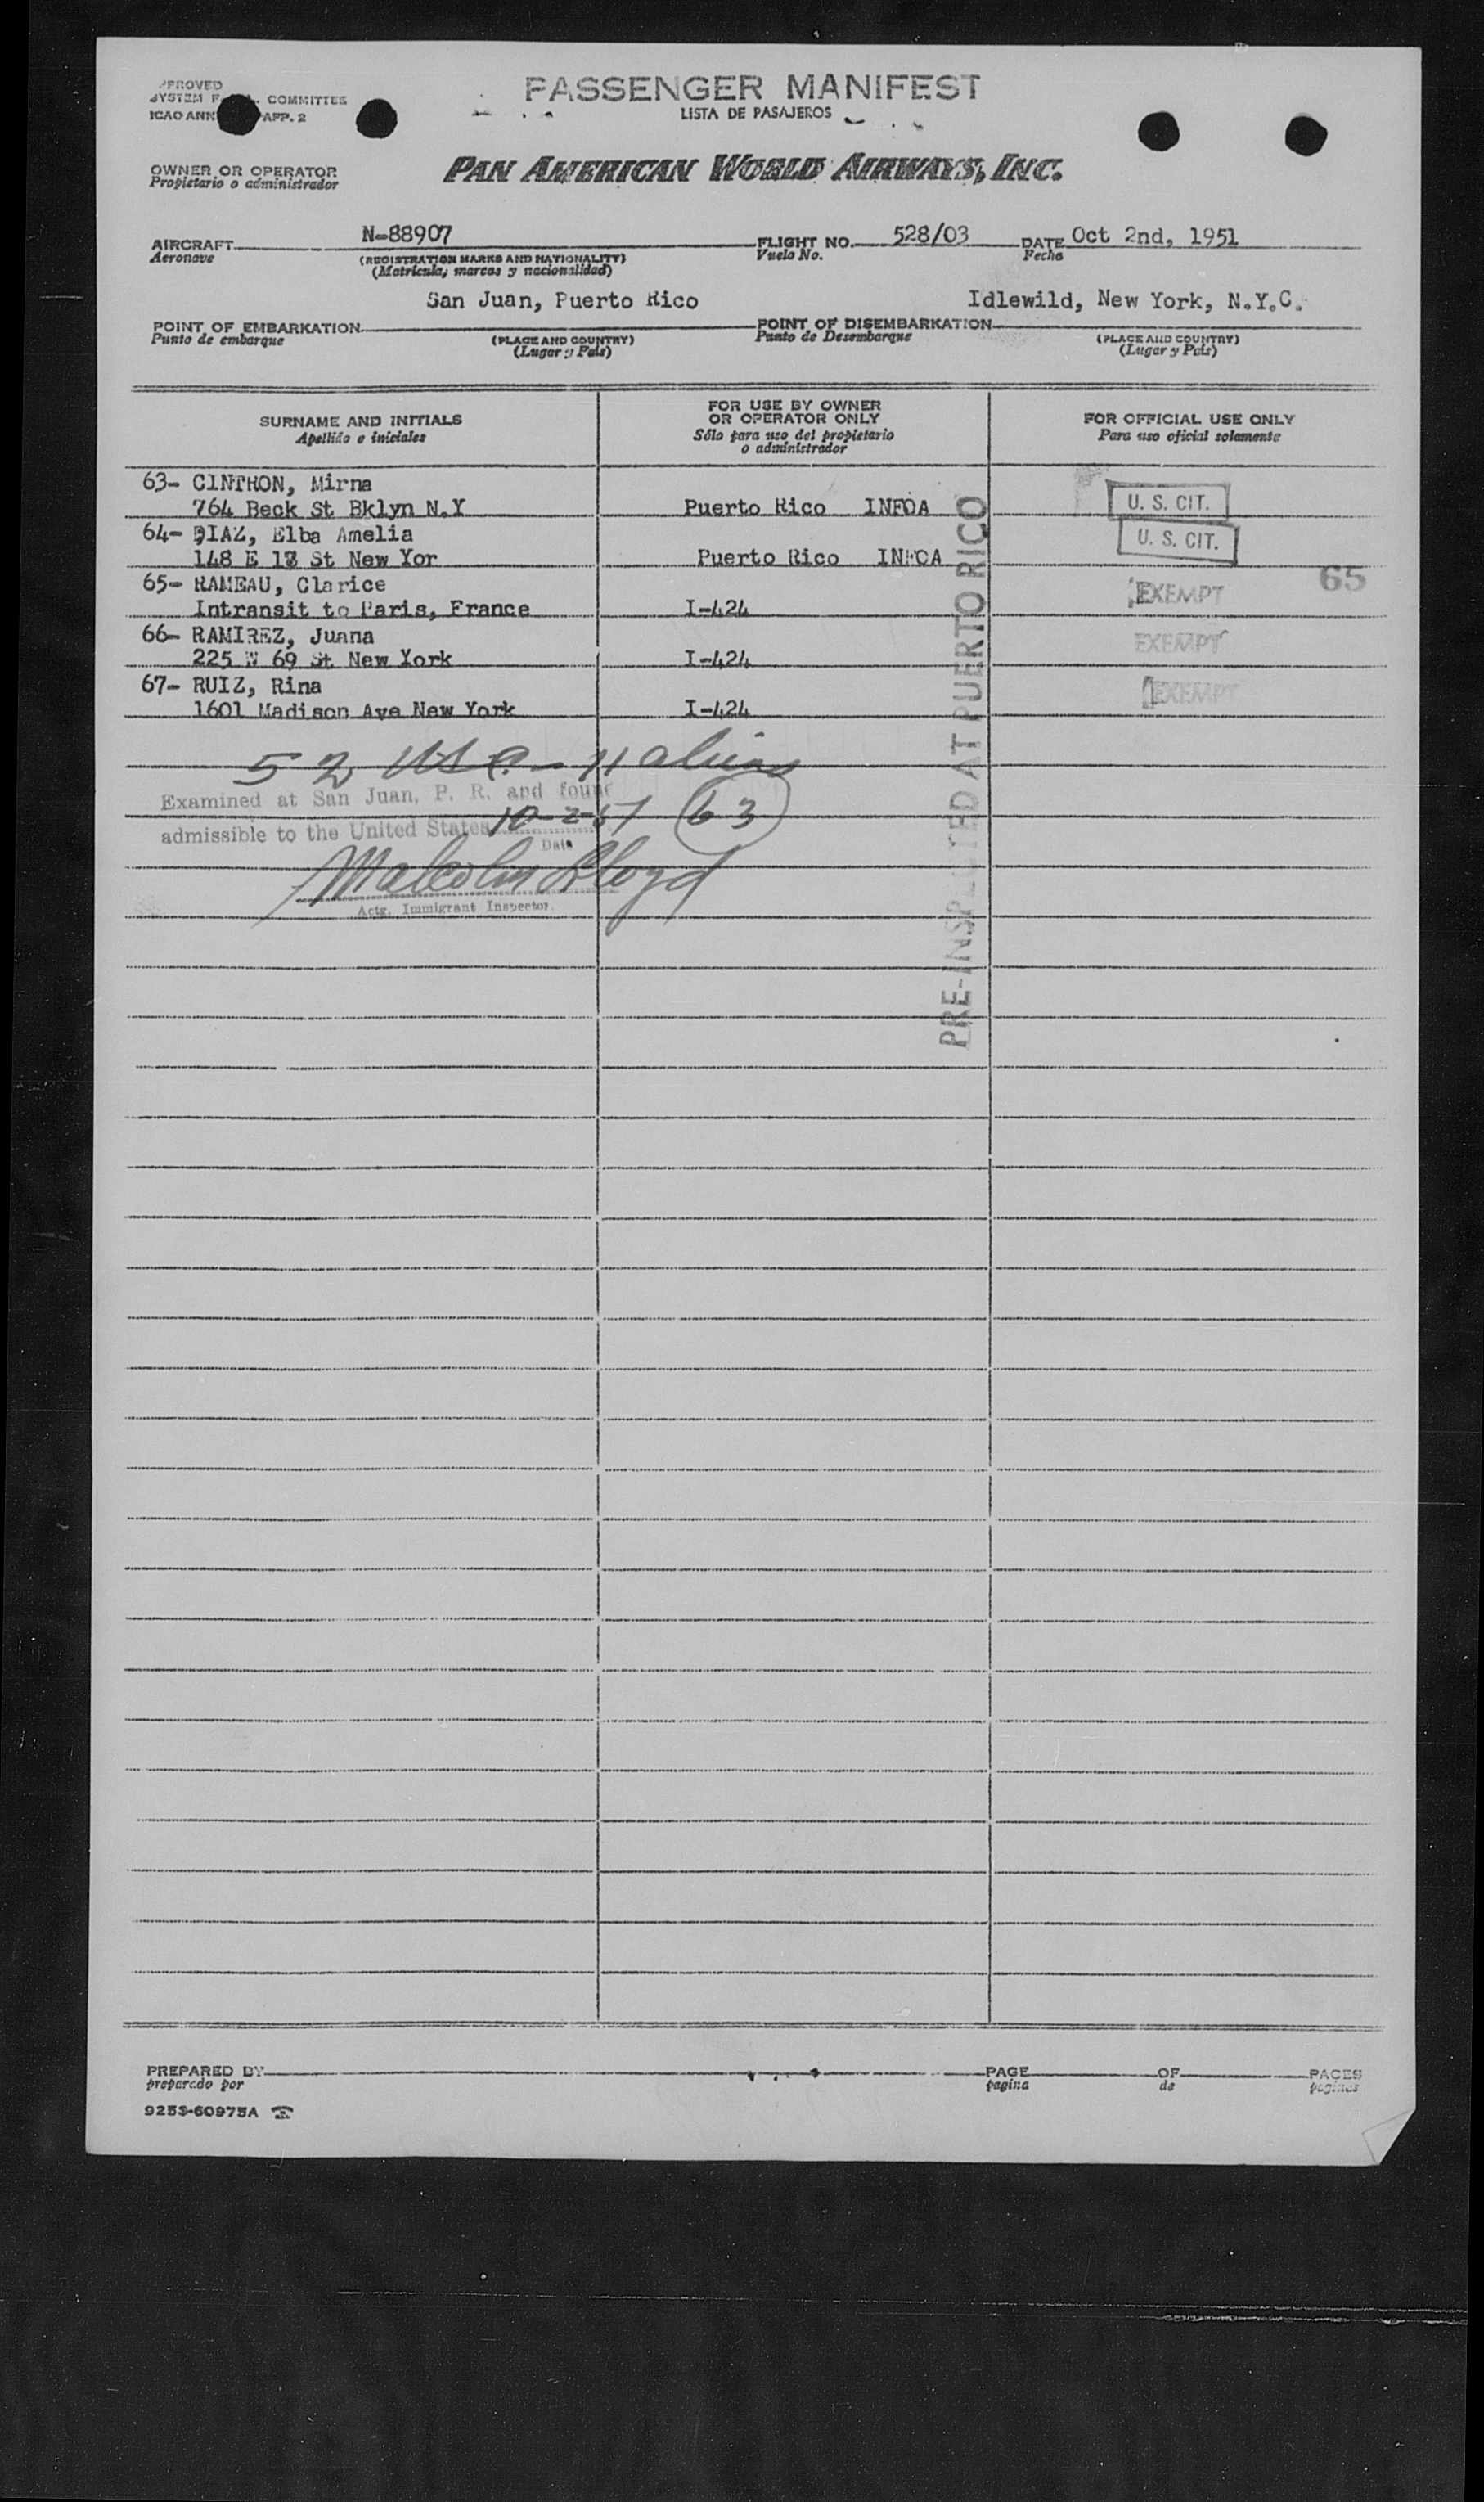 PASSENGER MANIFEST
LISTA DE PASAJEROS
SYSTEM COMMITTEE
ICAO ANN APP. 2
OWNER OR OPERATOR
Propietario o administrador
PAN AMERICAN WORLD AIRWAYS, INC.
AIRCRAFT N-88907 FLIGHT NO. 528/03 DATE Oct 2nd, 1951
Aeronave (REGISTRATION MARKS AND NATIONALITY) Vuelo No. Fecha
(Matrícula, marcas y nacionalidad)
San Juan, Puerto Rico Idlewild, New York, N.Y.C.
POINT OF EMBARKATION POINT OF DISEMBARKATION
Punto de embarque (PLACE AND COUNTRY) Punto de Desembarque (PLACE AND COUNTRY)
(Lugar y País) (Lugar y País)
SURNAME AND INITIALS FOR USE BY OWNER OR OPERATOR ONLY FOR OFFICIAL USE ONLY
Apellido e iniciales Sólo para uso del propietario o administrador Para uso oficial solamente
63- CINTRON, Mirna
764 Beck St Bklyn N.Y Puerto Rico INFOA U. S. CIT.
64- DIAZ, Elba Amelia U. S. CIT.
148 E 18 St New Yor Puerto Rico INFOA
65- RAMEAU, Clarice EXEMPT 65
Intransit to Paris, France I-424
66- RAMIREZ, Juana EXEMPT
225 W 69 St New York I-424
67- RUIZ, Rina EXEMPT
1601 Madison Ave New York I-424
PRE-INSPECTED AT PUERTO RICO
52 USC - 11 aliens
Examined at San Juan, P. R. and found
admissible to the United States 10-2-51 63
Date
Malcolm Lloyd
Actg. Immigrant Inspector.
PREPARED BY PAGE OF PAGES
preparado por pagina de paginas
9253-60975A